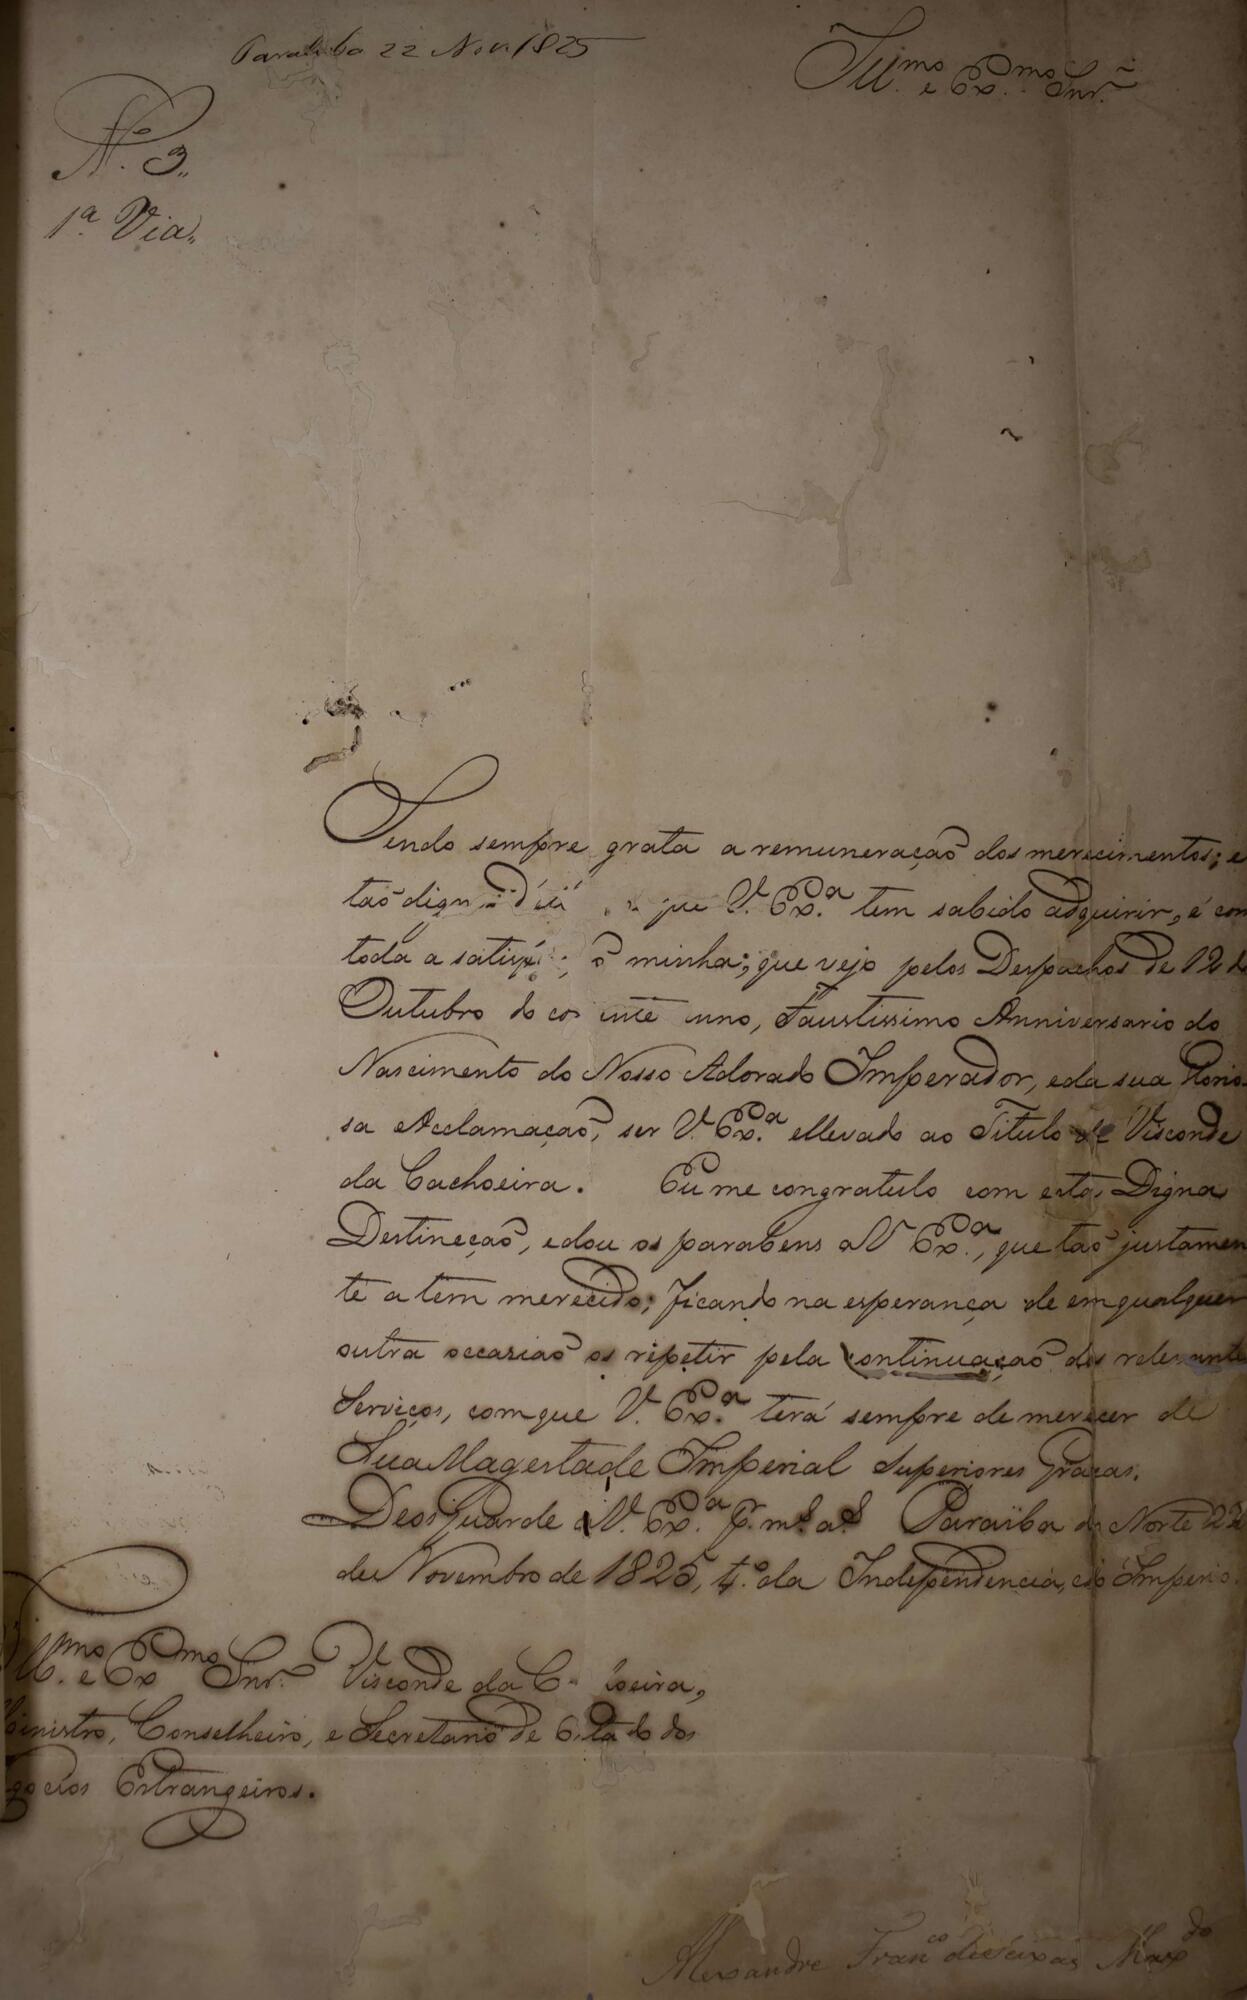 Paraiba 22 Nov. 1825
Ill.mo e Ex.mo Snr.
N.o 3.
1.a Via,,
Sendo sempre grata a remuneração dos merecimentos; e
tão dign que V. Ex.a tem sabido adquirir, é com
toda a satisf minha; que vejo pelos Despachos de 12 de
Outubro do cor ente anno, Faustissimo Anniversario do
Nascimento do Nosso Adorado Imperador, e da sua Glorio-
sa Acclamação, ser V. Ex.a ellevado ao Titulo de Visconde
da Cachoeira. Eu me congratulo com esta Digna
Destincção, e dou os parabens a V Ex.a, que tão justamen
te a tem merecido; ficando na esperança de em qualquer
outra occasião os repetir pela continuação dos relevante
Serviços, com que V. Ex.a terá sempre de merecer de
Sua Magestade Imperial Superiores Graças.
Deos Guarde a V. Ex.a p.r m.s a.s Paraiba do Norte 22
de Novembro de 1825, 4.o da Independencia, e do Imperio.
Ill.mo e Ex.mo Snr. Visconde da C hoeira,
Ministro, Conselheiro, e Secretario de Estado dos
gocios Estrangeiros.
Alexandre Fran.co de Seixas Max.do